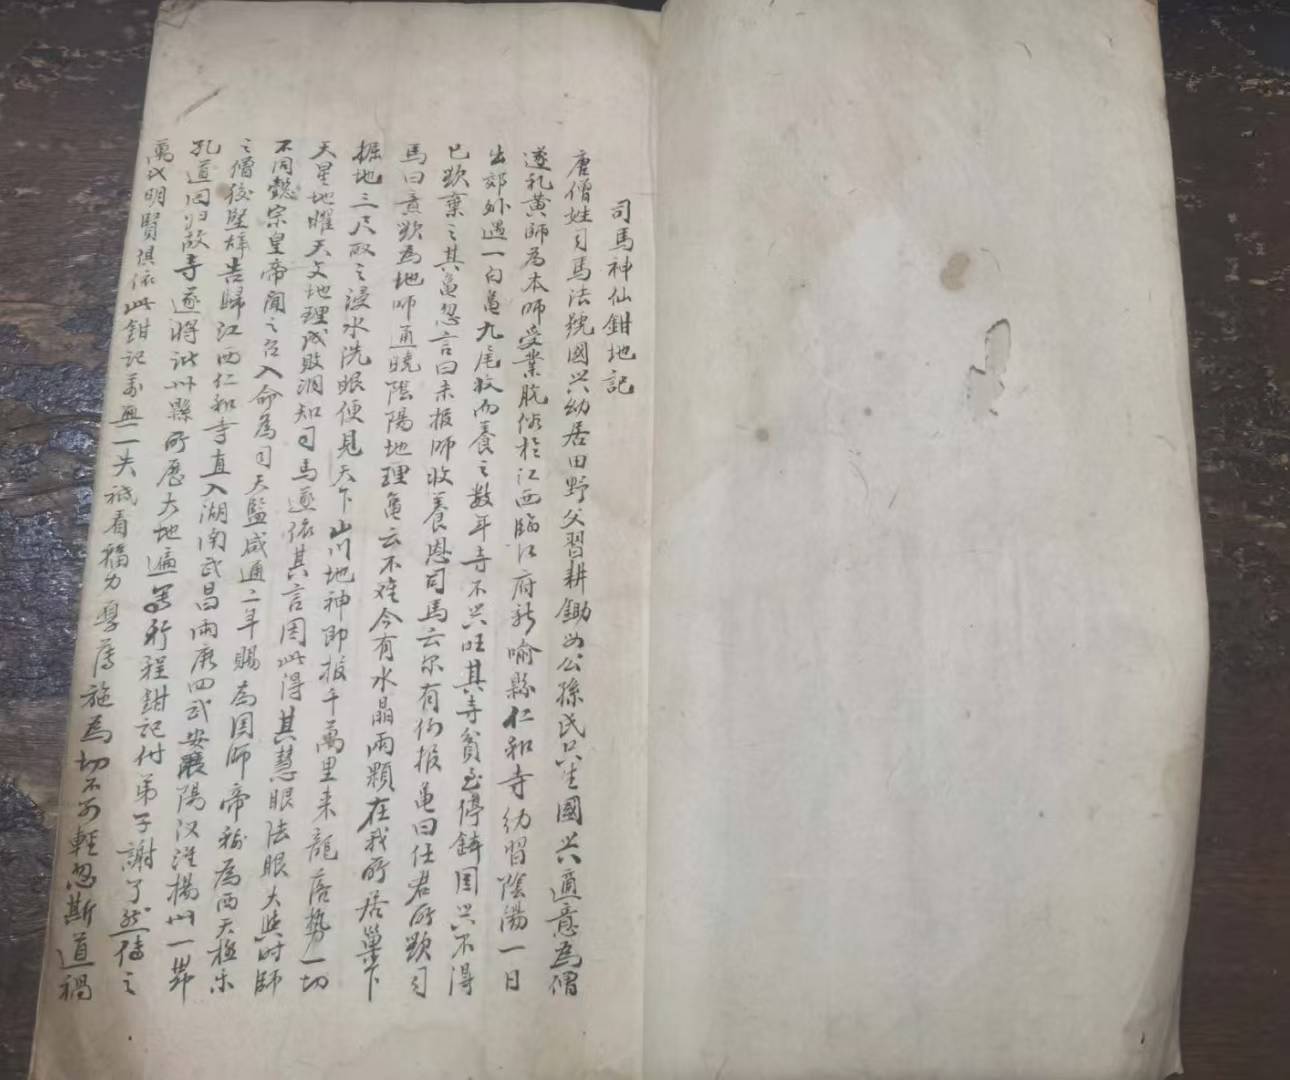 司馬神仙鉗地記
唐僧姓司馬法號國興幼居田野父習耕鋤母公孫氏只生國興適意為僧
遂礼黄師為本師受業脫俗於江西臨江府新喻縣仁和寺幼習陰陽一日
出郊外遇一白亀九尾收而養之数年寺不興旺其寺貧乏停鋳国興不得
已欲棄之其亀忽言曰未报師收養恩司馬云尔有何报亀曰任君所欲司
馬曰意欲為地师通曉陰陽地理亀云不难今有水晶兩顆在我所居巢下
掘地三尺取之浸水洗眼便見天下山川地神即报千萬里来龍落势一切
天星地曜天文地理成敗洞知司馬遂依其言因此得其慧眼法眼大與时師
不同懿宗皇帝聞之召入命為司天監咸通二年賜為国師帝称為西天極樂
之僧後堅辞告歸江西仁和寺直入湖南武昌兩廣四武安襄陽汉淮揚州一带
孔道回归故寺遂將此州縣所歷大地遍寫行程鉗記付弟子謝了然傳之
萬代明賢俱依此鉗記萬無一失祇看福力厚薄施為切不可輕忽斯道禍